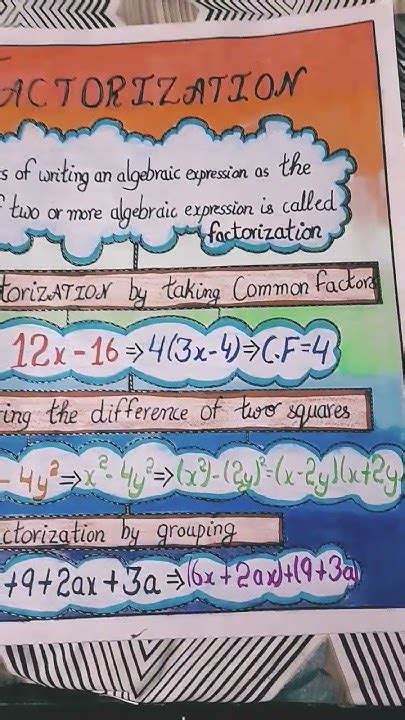 ACTORIZATION
s of writing an algebraic expression as the
f two or more algebraic expression is called
factorization
torizATION by taking Common factors
12x-16⇒4(3x-4)⇒C.F=4
ing the difference of two squares
- 4y²⇒x²-4y²⇒(x²)-(2y)²=(x-2y)(x+2y
ctorization by grouping
+9+2ax+3a⇒(6x+2ax)+(9+3a)